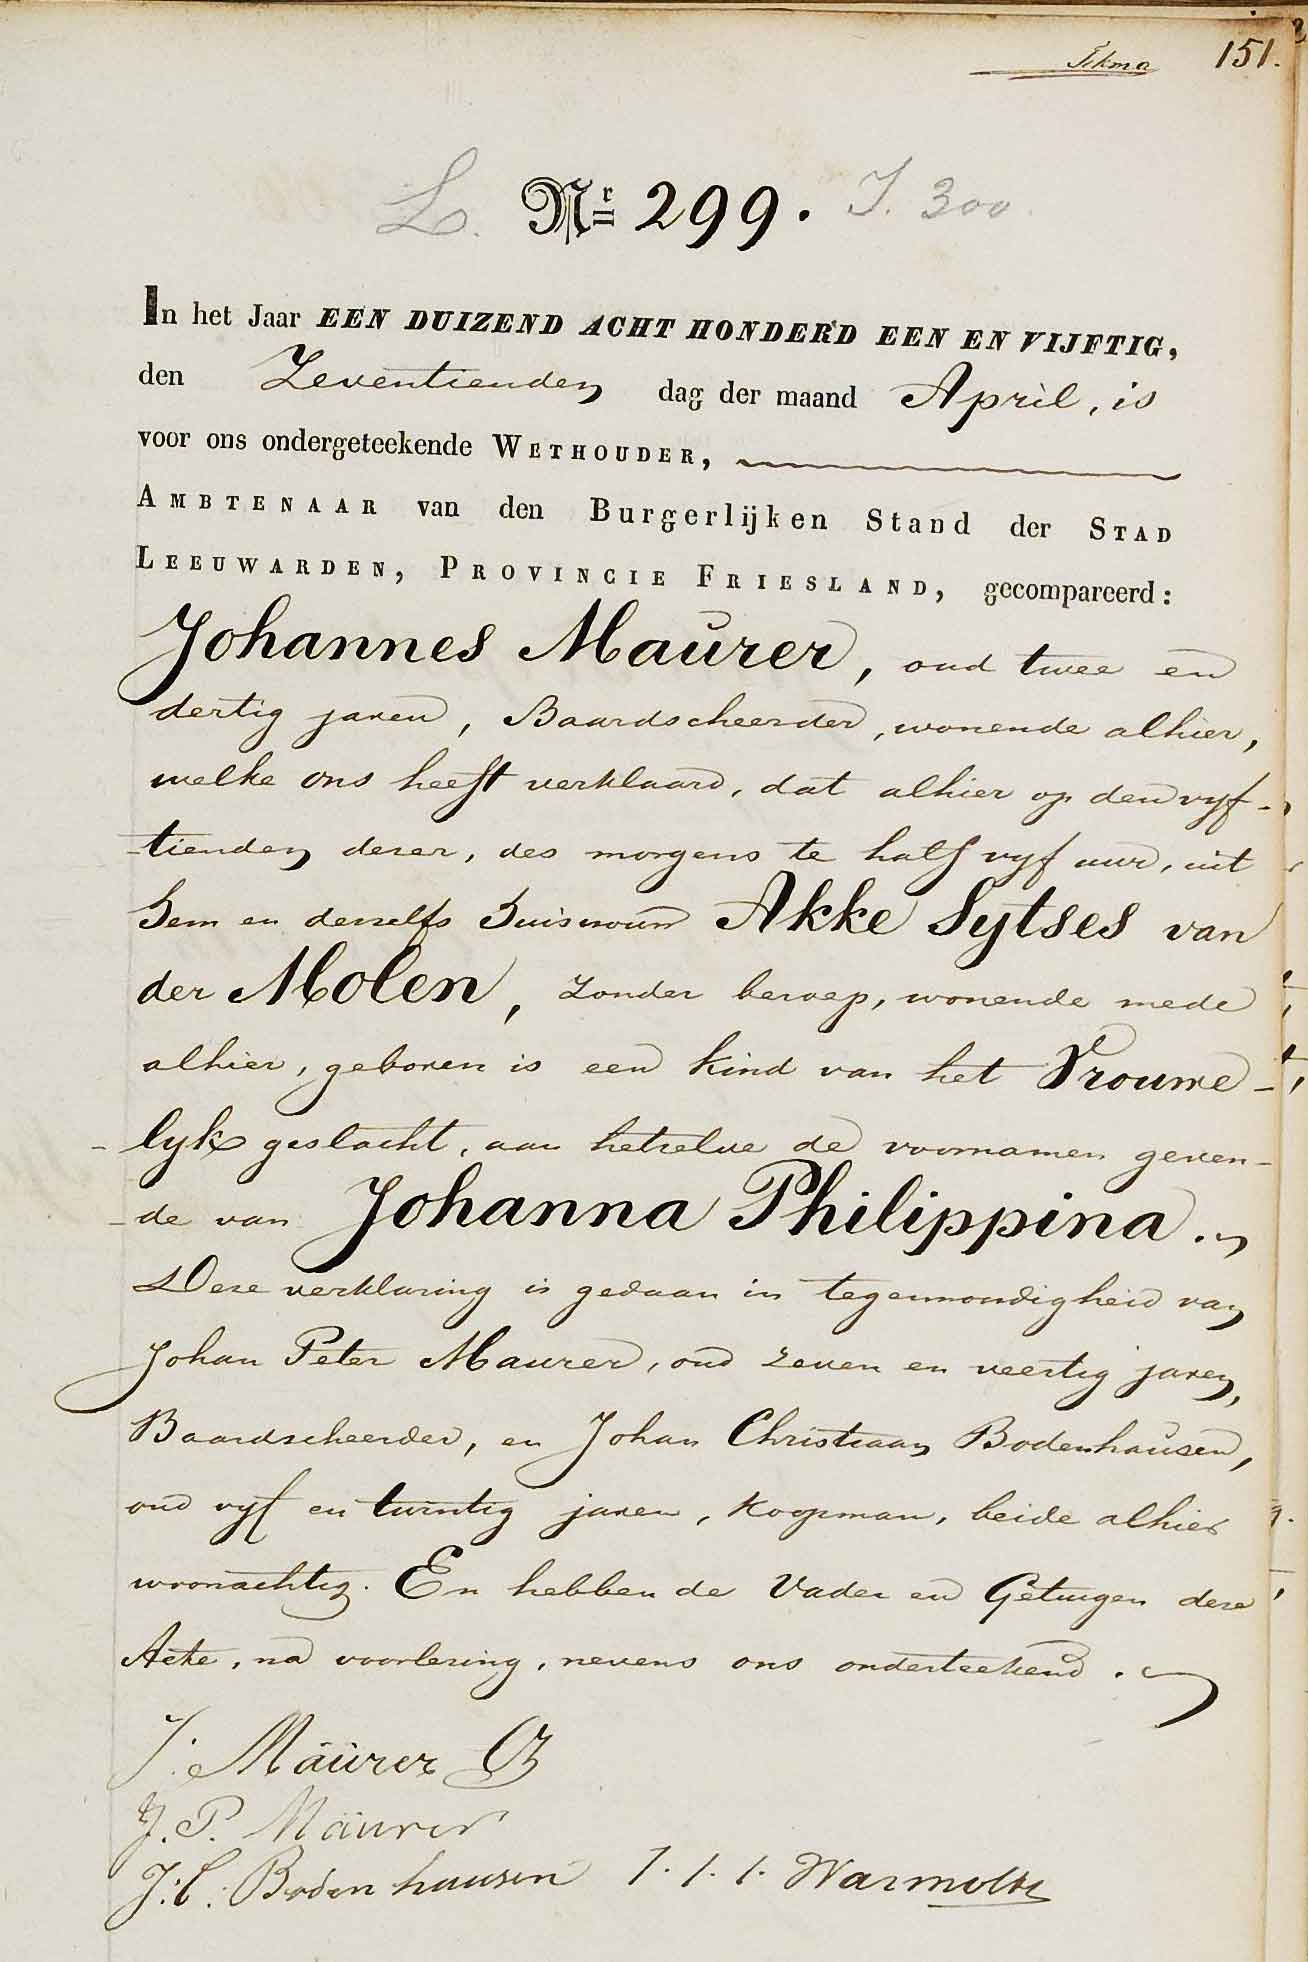 151.
L. Nr 299. J. 300.
In het Jaar EEN DUIZEND ACHT HONDERD EEN EN VIJFTIG,
den Zeventienden dag der maand April, is
voor ons ondergeteekende WETHOUDER,
AMBTENAAR van den Burgerlijken Stand der STAD
LEEUWARDEN, PROVINCIE FRIESLAND, gecompareerd:
Johannes Maurer, oud twee en
dertig jaren, Baardscheerder, wonende alhier,
welke ons heeft verklaard, dat alhier op den vyf-
tienden dezer, des morgens te half vyf uur, uit
hem en deszelfs huisvrouw Akke Sytses van
der Molen, zonder beroep, wonende mede
alhier, geboren is een kind van het Vrouwe-
lyk geslacht, aan hetzelve de voornamen geven-
de van Johanna Philippina.
Deze verklaring is gedaan in tegenwoordigheid van
Johan Peter Maurer, oud zeven en veertig jaren,
Baardscheerder, en Johan Christiaan Bodenhausen,
oud vyf en twintig jaren, Koopman, beide alhier
woonachtig. En hebben de Vader en Getuigen deze
Acte, na voorlezing, nevens ons onderteekend.
J. Mäurer
J. P. Mäurer
J: C: Bodenhausen J. J. J. Warmolts